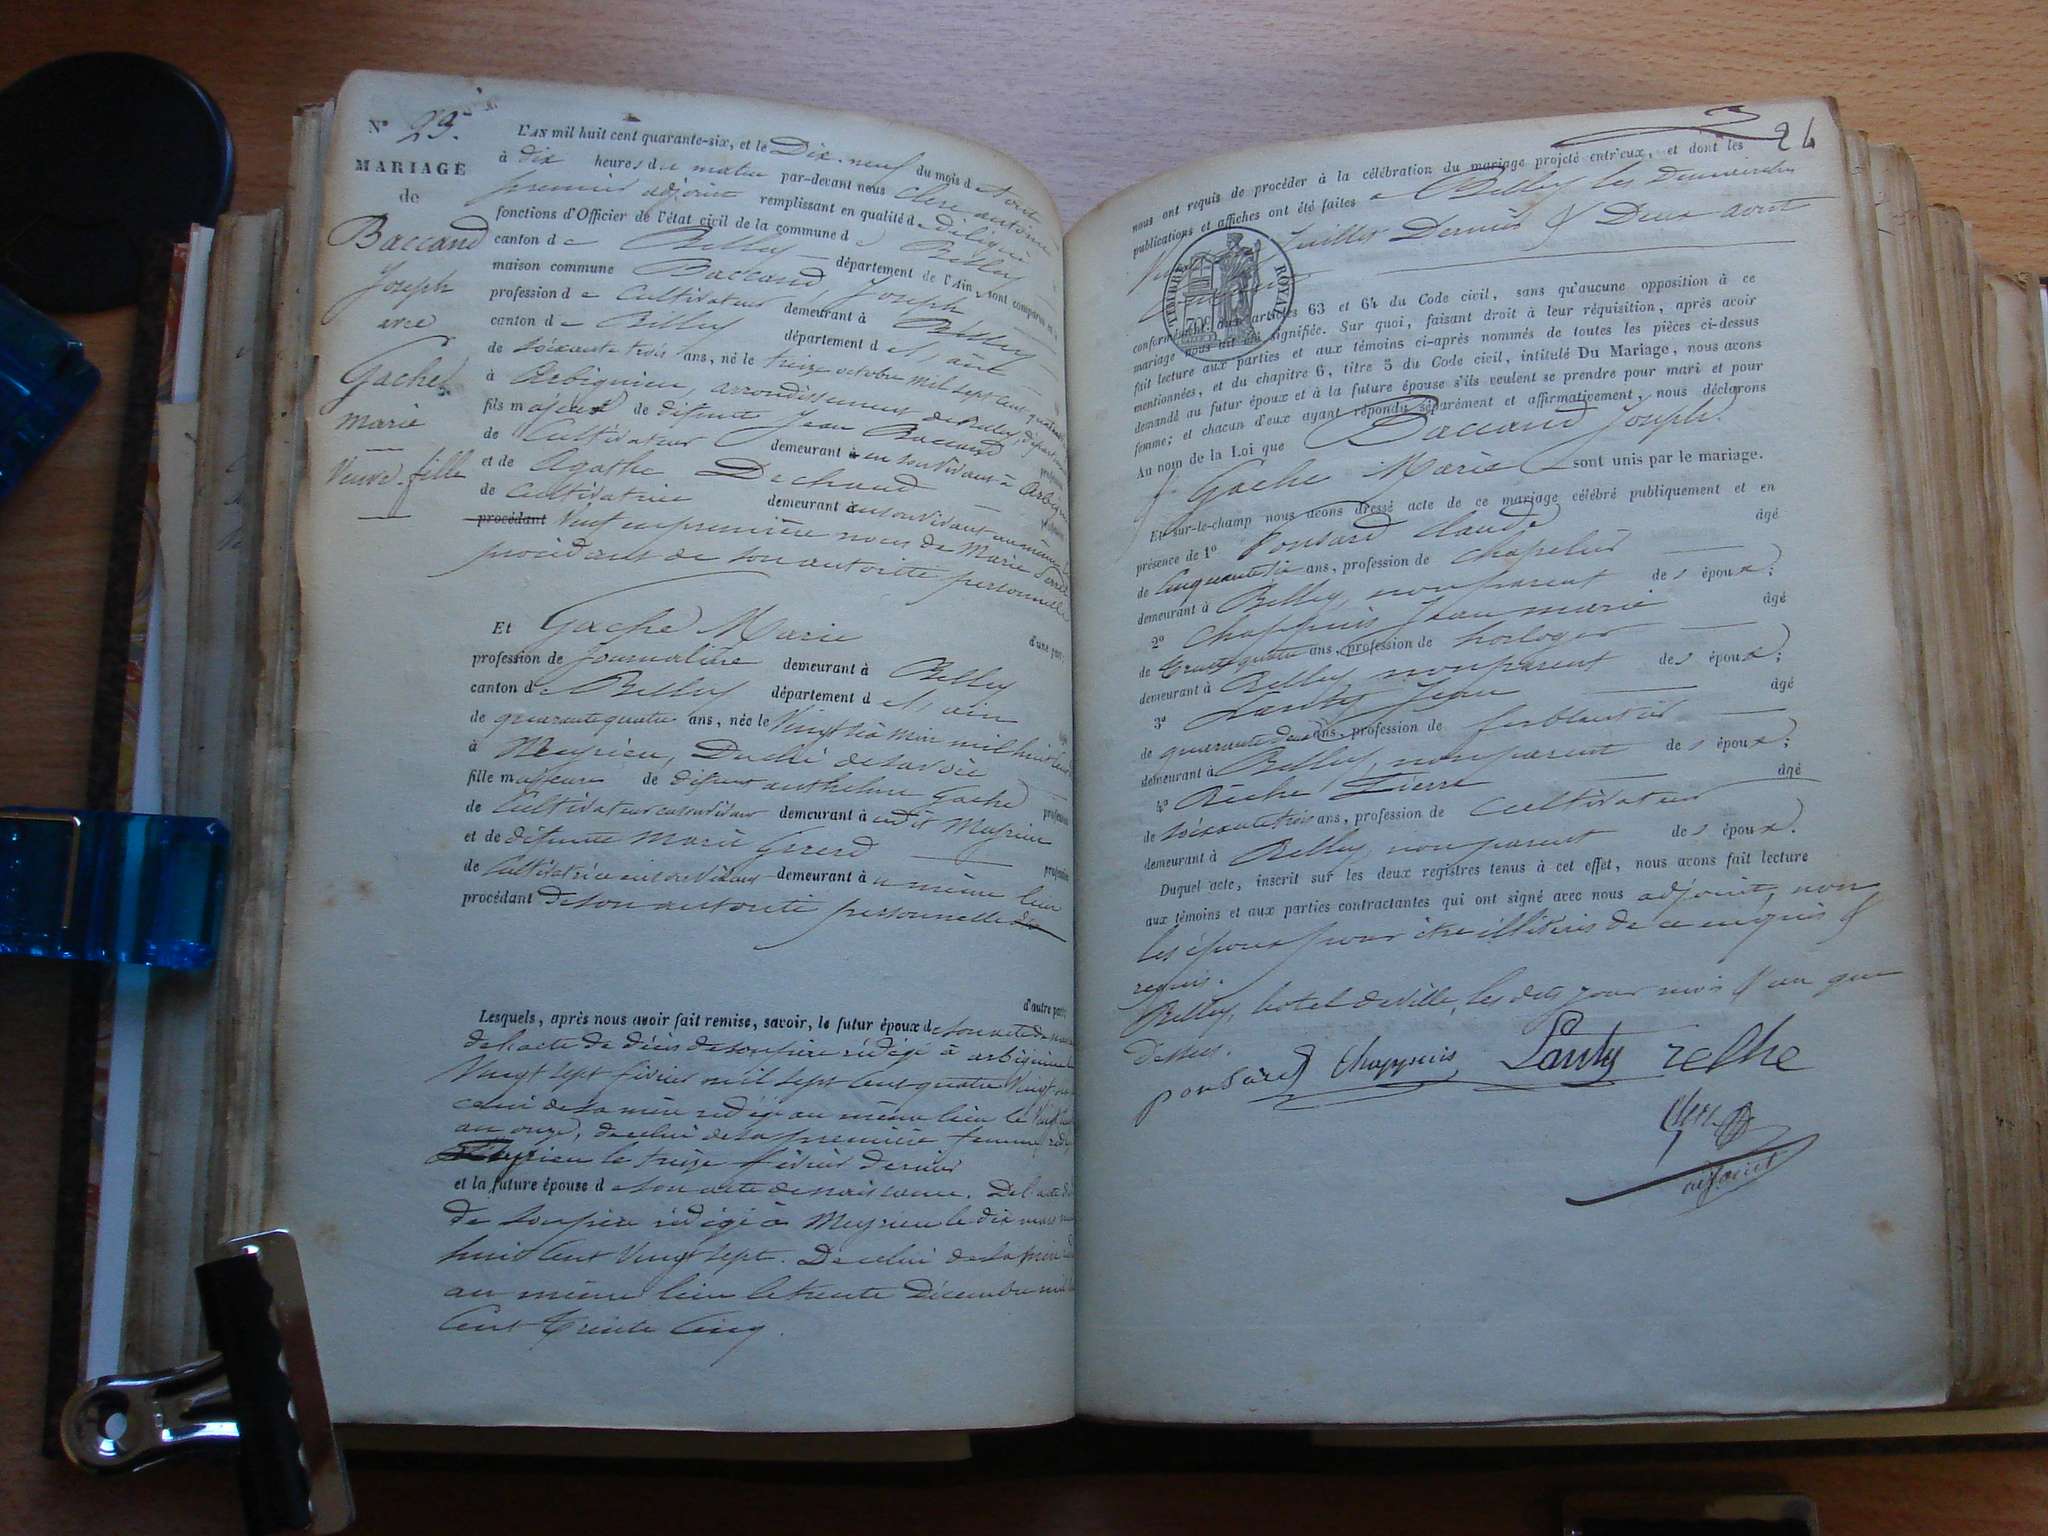 N° 23.
MARIAGE
de
Baccand
Joseph
avec
Gachet
Marie
Veuve - fille
L'AN mil huit cent quarante-six, et le Dix-neuf du mois d'aout
à dix heures du matin par-devant nous Clerc antoine
premier adjoint remplissant en qualité de délégué
fonctions d'Officier de l'état civil de la commune de Belley
canton de Belley — département de l'Ain, sont comparus en la
maison commune Baccand Joseph
profession de Cultivateur demeurant à Belley
canton de Belley département de l'ain
de soixante trois ans, né le treize octobre mil sept cent quatre
à Arbignieu, arrondissement de Belley, départ
fils majeur de défunt Jean Baccand profession
de Cultivateur demeurant à en son vivant à Arbignieu
et de Agathe Dechaud
de Cultivatrice demeurant à en son vivant au même
procédant Veuf en première noces de Marie
procédant de son autorité personnelle
d'une part;
Et Gache Marie
profession de Journalière demeurant à Belley
canton de Belley département de l'ain
de quarante quatre ans, née le Vingt six mil huit cent
à Meyrieu, Duché de Savoie
fille majeure de défunt anthelme Gache profession
de Cultivateur en son vivant demeurant à Meyrieu
et de défunte Marie Gererd — profession
de Cultivatrice en son vivant demeurant à même lieu
procédant de son autorité personnelle
d'autre part;
Lesquels, après nous avoir fait remise, savoir, le futur époux de son acte de
de l'acte de décès de son père rédigé à arbignieu le
Vingt sept février mil sept cent quatre Vingt
celui de sa mère rédigé au même lieu le Vingt
an onze, de celui de sa première femme
le treize février dernier
et la future épouse de son acte de naissance. De l'acte de
de son père rédigé à Meyrieu le dix mars
huit cent Vingt sept. De celui de sa mère
au même lieu le trente Décembre mil
Cent trente Cinq.
24
nous ont requis de procéder à la célébration du mariage projeté entr'eux, et dont les
publications et affiches ont été faites à Belley les Dimanches
Vingt Juillet Dernier & Deux aout
TIMBRE ROYAL
conformément aux articles 63 et 64 du Code civil, sans qu'aucune opposition à ce
mariage nous ait été signifiée. Sur quoi, faisant droit à leur réquisition, après avoir
fait lecture aux parties et aux témoins ci-après nommés de toutes les pièces ci-dessus
mentionnées, et du chapitre 6, titre 5 du Code civil, intitulé Du Mariage, nous avons
demandé au futur époux et à la future épouse s'ils veulent se prendre pour mari et pour
femme; et chacun d'eux ayant répondu séparément et affirmativement, nous déclarons
Au nom de la Loi que Baccand Joseph
& Gache Marie sont unis par le mariage.
Et sur-le-champ nous avons dressé acte de ce mariage célébré publiquement et en
présence de 1° Ponsard Claude âgé
de Cinquante six ans, profession de Chapelier
demeurant à Belley, non parent des époux;
2° Chappuis Jean marie âgé
de trente quatre ans, profession de horloger
demeurant à Belley, non parent des époux;
3° Lanty Jean âgé
de quarante deux ans, profession de ferblantier
demeurant à Belley, non parent des époux;
4° Rèche Pierre âgé
de soixante trois ans, profession de Cultivateur
demeurant à Belley, non parent des époux.
Duquel acte, inscrit sur les deux registres tenus à cet effet, nous avons fait lecture
aux témoins et aux parties contractantes qui ont signé avec nous adjoint, non
les époux pour être illitérés de ce enquis &
requis.
Belley, hotel de ville, les dits jour mois & an que
Dessus.
ponsard Chappuis Lanty reche
Clerc
adjoint